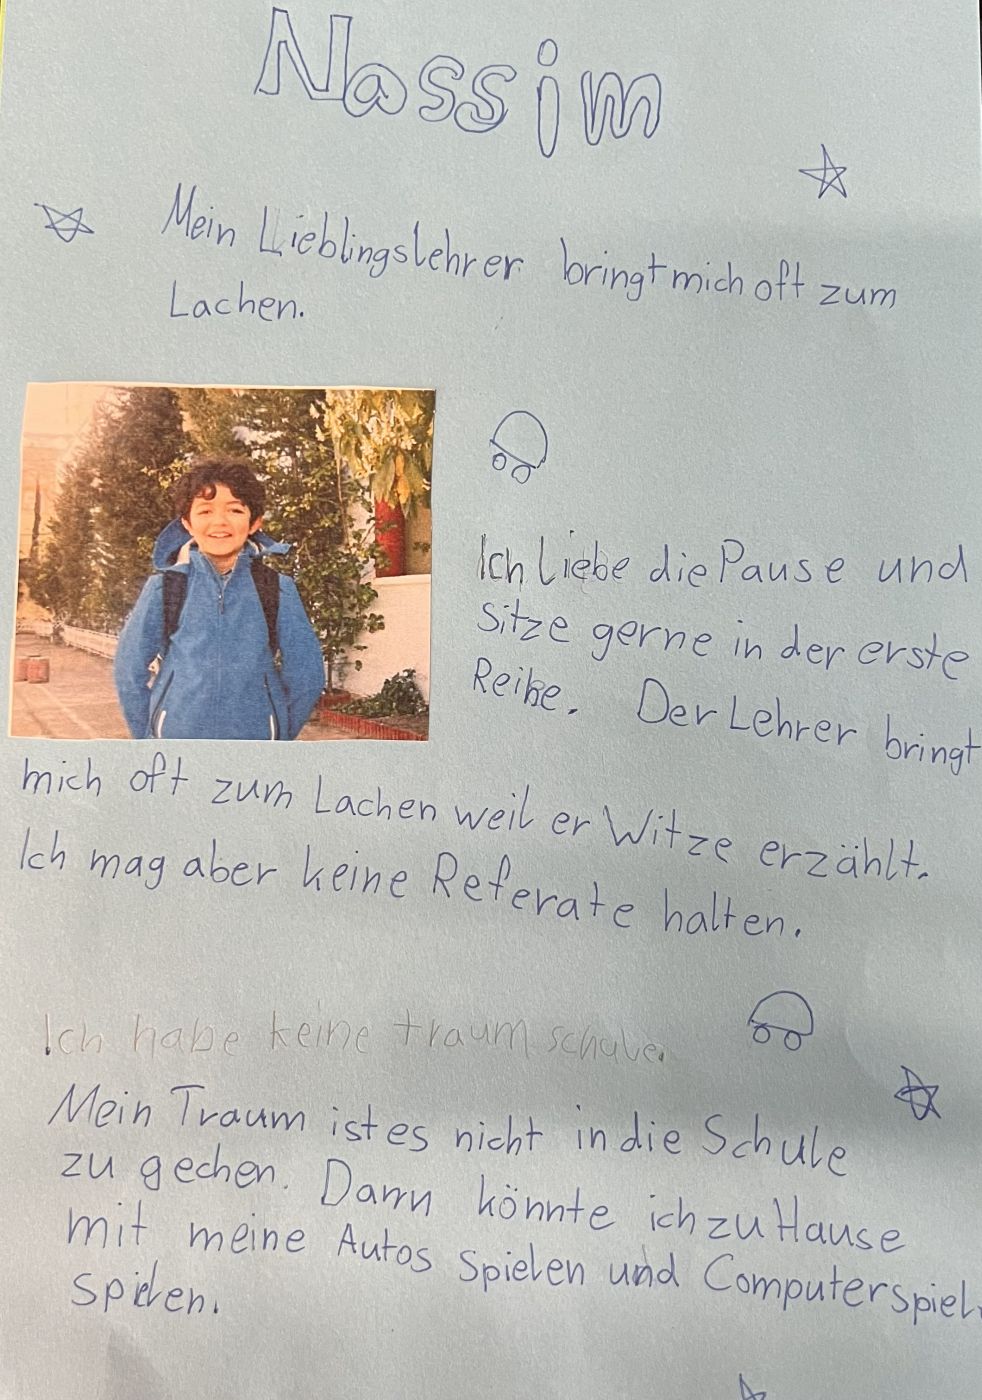 Nassim
Mein Lieblingslehrer bringt mich oft zum
Lachen.
Ich Liebe die Pause und
sitze gerne in der erste
Reihe. Der Lehrer bringt
mich oft zum Lachen weil er Witze erzählt.
Ich mag aber keine Referate halten.
Ich habe keine traumschule.
Mein Traum ist es nicht in die Schule
zu gechen. Dann könnte ich zu Hause
mit meine Autos spielen und Computerspiel
spielen.